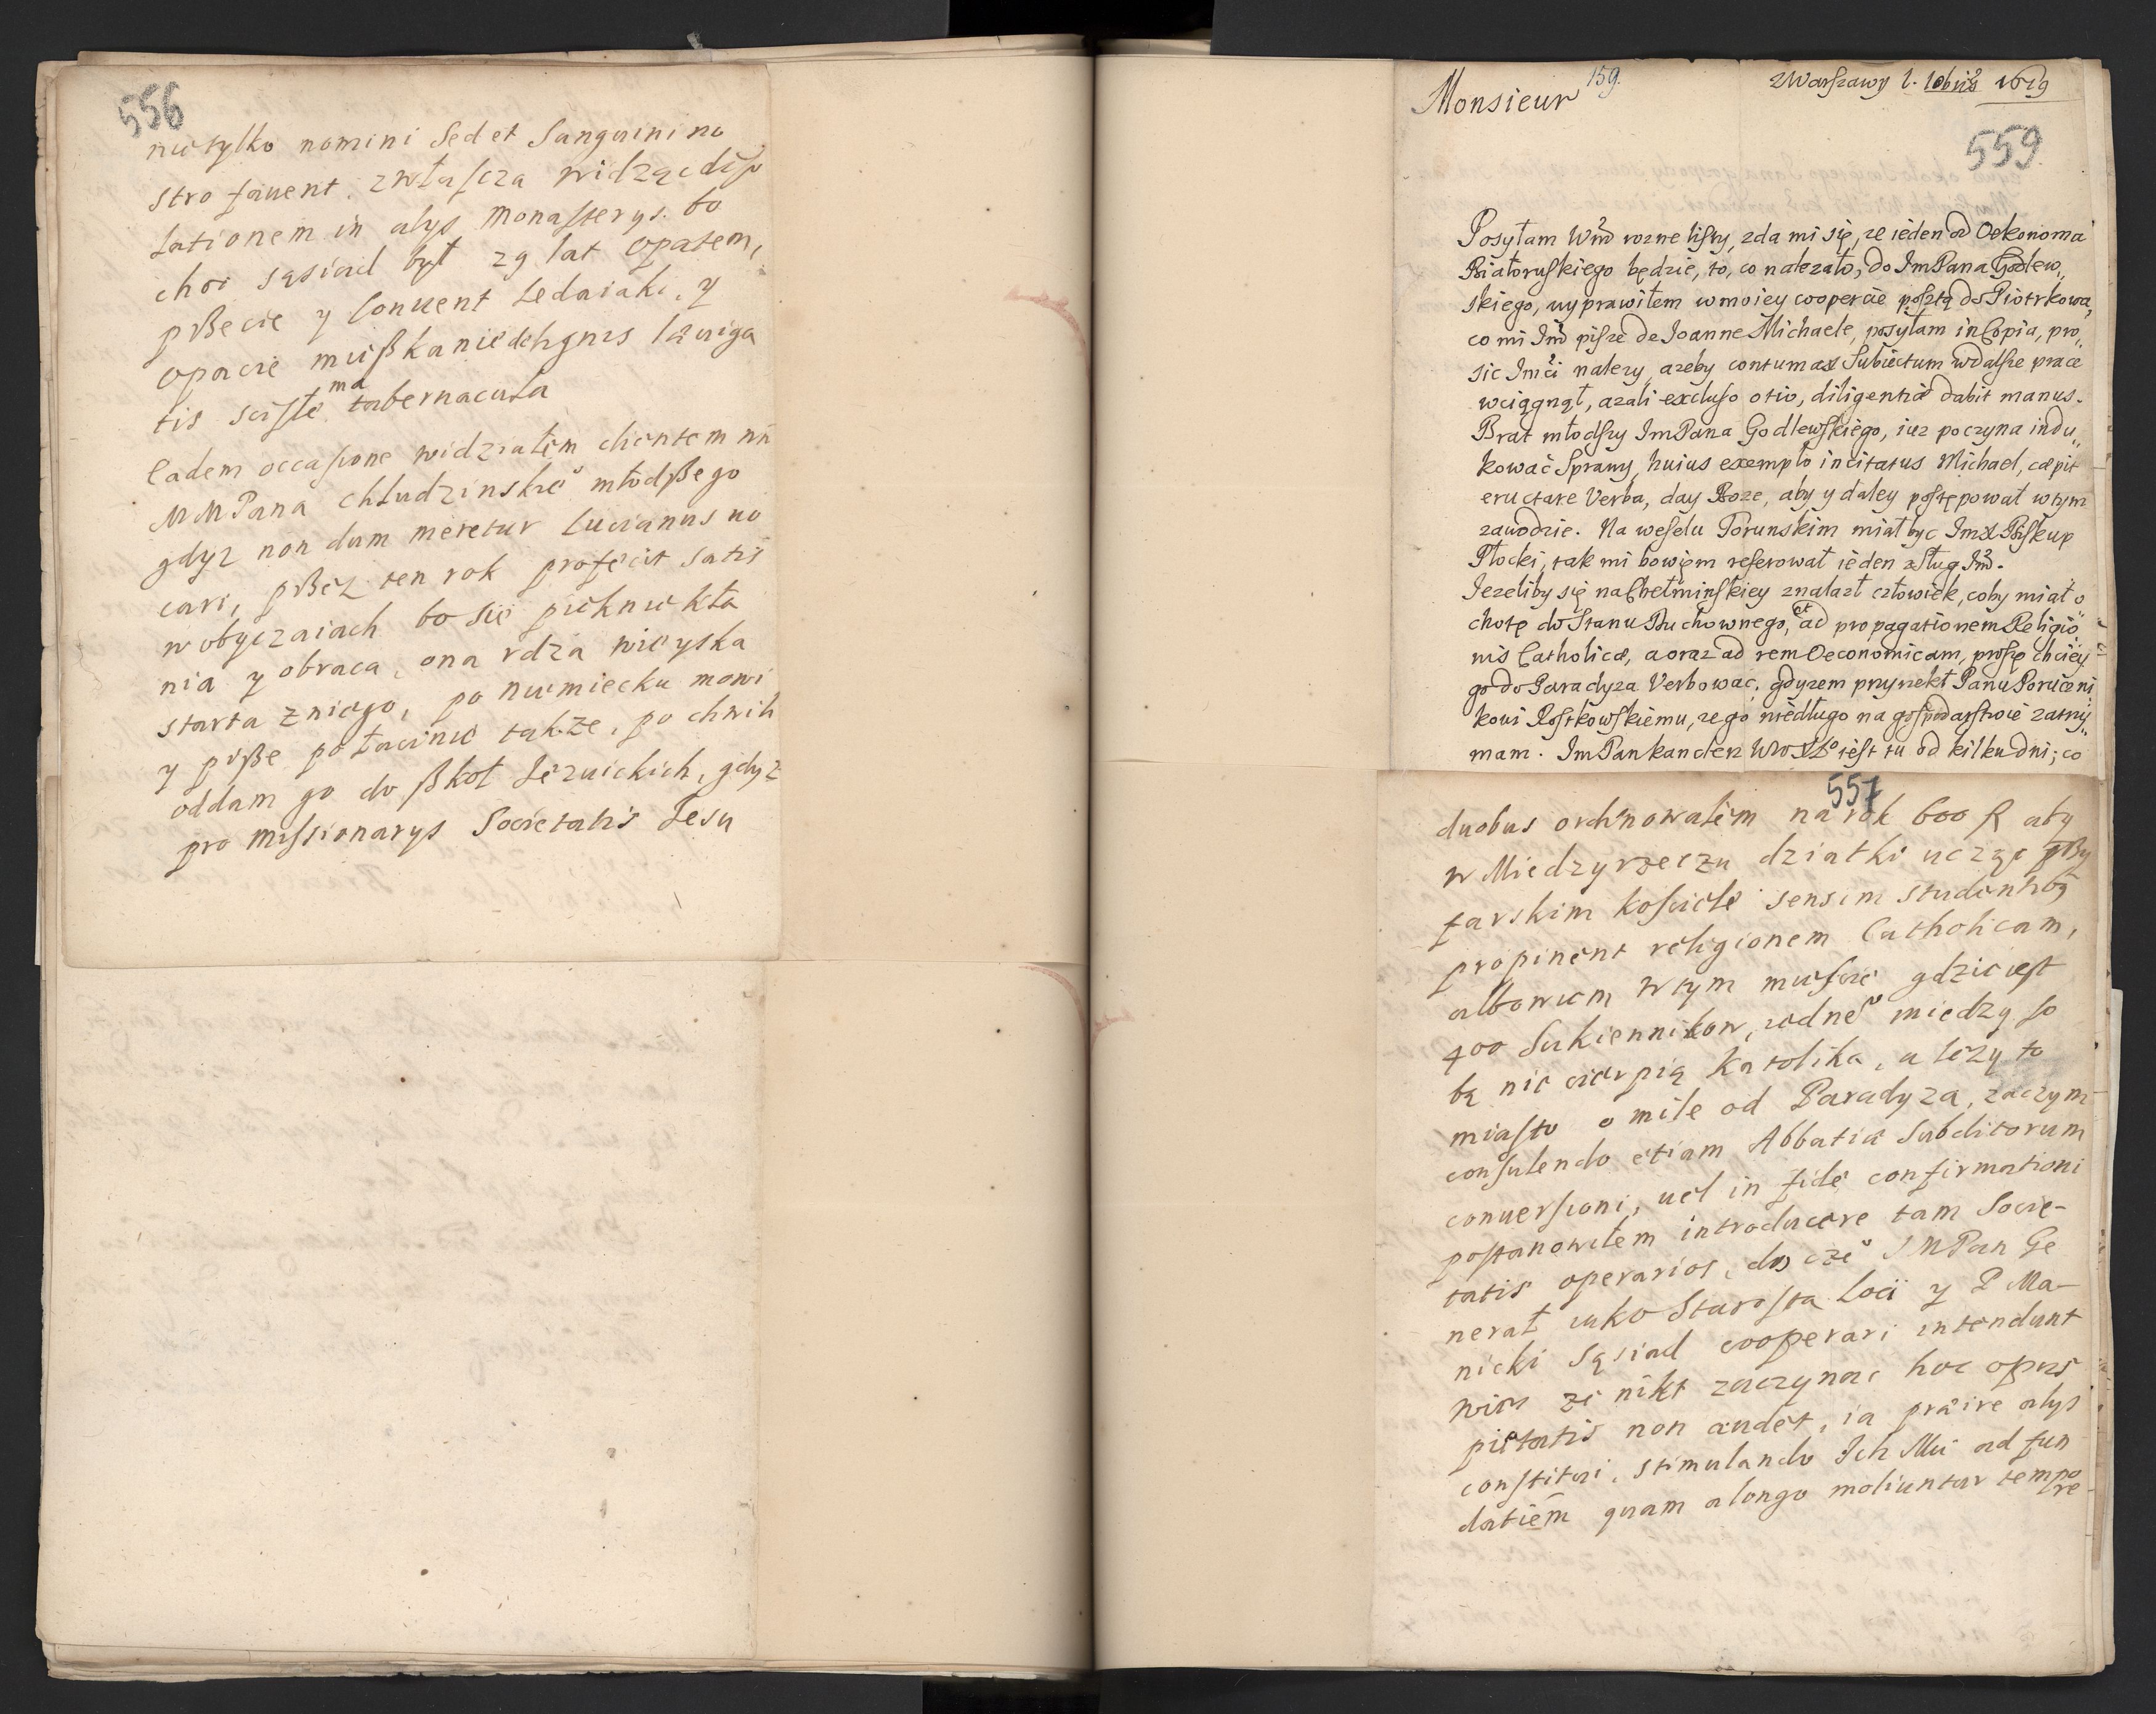 556
nie tylko nomini sed et Sanguini no
stro fauent, zwłaſcza widząc diſo
lationem in alys Monaſterys. bo
choć sąsiad był 29 lat opatem,
pßecie y Conuent Ledaiaki, y
opacie mießkanie
tis sciste ma tabernacula
Eadem occaſione widziałem clientem
M M Pana Chłudzinskieº młodßego
gdyz non dum meretur Lucianus uo
cari, pßez ten rok profecit satis
w obyczaiach bo sie pieknie kła
nia y obraca, ona rdza wieyska
starta z niego, po niemiecku mowi
y piße po łacinie takze, po chwili
oddam go do ßkoł Jezuickich, gdyz
pro Missionarys Societatis Jesu
Monsieur
159.
z Warſzawy 1. 10bris 1679
559
Posyłam Wm̃ rozne liſty, zda mi się, ze ieden od Oekonoma
Białoruſkiego będzie, to, co nalezało, do Im Pana Godlew„
skiego, wyprawiłem w moiey coopercie poſztą do Piotrkowa,
co mi Jm̃ piſze de Joanne Michaele, posyłam in Copia, pro„
sic Jmci nalezy, azeby contumax Subiectum w dalſze prace
wciągnął, azali excluſo otio, diligentiæ dabit manus.
Brat młodſzy Im Pana Godlewſkiego, iuz poczyna indu„
kować Sprawy, huius exemplo incitatus Michael, cæpit
eructare Verba, day Boze, aby y daley poſtępował w tym
zawodzie. Na weſelu Torunskim miał byc Im X Biſkup
Płocki, tak mi bowiem referował ieden z ſług Jm̃.
Jezeliby się na Chełminſkiey znalazł człowiek, coby miał o
chotę do Stanu Duchownego, et ad propagationem Religio„
nis Catholicæ, a oraz ad rem Oeconomicam, proſzę chciey
go do Paradyza Verbowac, gdyzem przyrzekł Panu Porucżni
kowi Roſtkowſkiemu, ze go niedługo na goſpodarſtwie zatrzy„
mam. Im Pan kanclerz WXLº ieſt tu od kilku dni; co
557
duobus ordinowałem na rok 600 fl aby
w Miedzyrzeczu dziatki ucząc pßy
farskim koſciele sensim studentibus
propinent religionem Catholicam,
albowiem w tym mieſcie gdzie ieſt
400 Sukiennikow, zadneº miedzy so
bą nie cierpią Katolika, a lezy to
miaſto o mile od Paradyza, zaczym
conſulendo etiam Abbatiæ Subditorum
conuerſioni, uel in fide confirmationi
poſtanowiłem introducere tam Socie-
tatis operarios, do czeº J M Pan Ge
nerał iako Staroſta Loci y P Ma-
nicki sąsiad cooperari intendunt
wiem ze nikt zaczynac hoc opus
pietatis non audet, ia præire alys
conſtitui, stimulando Ich Mci ad fun
datiem̃ quam a longo moliuntur tempo
re